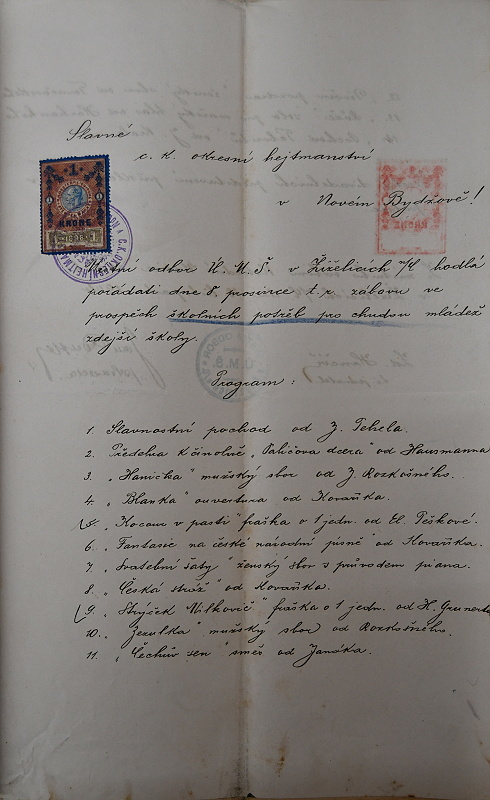 Slavné
c. k. okresní hejtmanství
v Novém Bydžově!
1
KRONE
1898
Místní odbor Ú. M. Š. v Žiželicích n/C hodlá
pořádati dne 8. prosince t. r. zábavu ve
prospěch školních potřeb pro chudou mládež
zdejší školy.
Program:
1. Slavnostní pochod od J.
2. Předehra k činohře „Paličova dcera" od Hausmanna
3. „Hanička" mužský sbor od J. Rozkošného.
4. „Blanka" ouvertura od Kovaříka.
5. „Kocour v pasti" fraška o 1 jedn. od El. Peškové.
6. „Fantasie na české národní písně" od Kovaříka.
7. „Svatební šaty" ženský sbor s průvodem piana.
8. „Česká stráž" od Kovaříka.
9. „Strýček" fraška o 1 jedn. od H. Grunerta
10. „Jezulka" mužský sbor od Rozkošného.
11. „Čechův sen" směs od